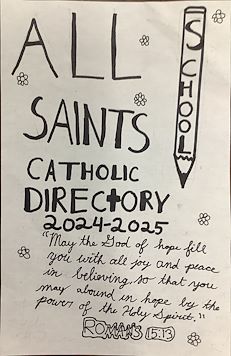 ALL
SCHOOL
SAINTS
CATHOLIC
DIRECTORY
2024-2025
"May the God of hope fill
you with all joy and peace
in believing, so that you
may abound in hope by the
power of the Holy Spirit."
ROMANS 15:13